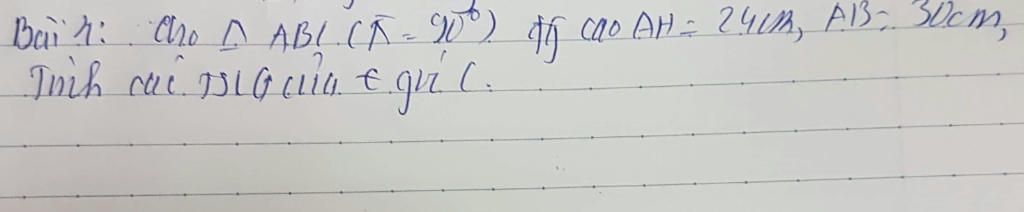 Bài 1: Cho Δ ABC (Â = 90°) đg cao AH = 24cm, AB = 30cm,
Tính các TSLG của góc C.